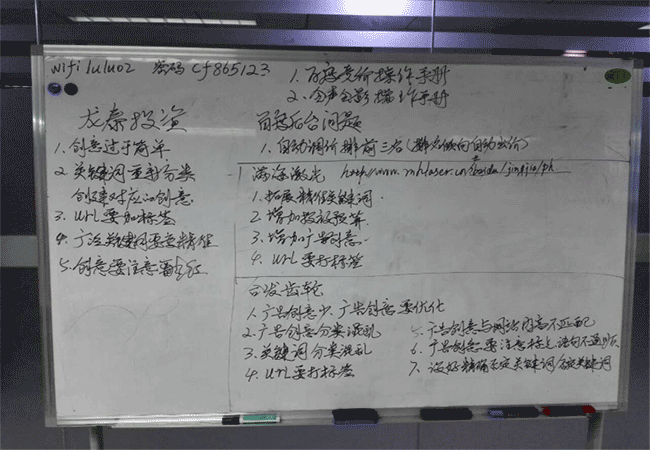 wifi luluo2 密码 cf865123
1. 百度竞价操作手册
2. 会声会影操作手册
龙泰投资
1. 创意过于简单
2. 关键词重新分类
创建对应的创意
3. URL要加标签
4. 广泛关键词要要精准
5. 创意要注意
百度后台问题
1. 自动调价排前三名(排名倾向自动出价)
海激光 http://www.mhlaser.cn/baidu/jingjia/ph
1. 拓展精准关键词.
2. 增加投放预算.
3. 增加广告创意.
4. URL要打标签
合发齿轮
1. 广告创意少、广告创意要优化
2. 广告创意分类混乱
3. 关键词分类混乱
4. URL要打标签
5. 广告创意与网站内容不匹配
6. 广告创意要注意标点 语句不通顺
7. 设好精确否定关键词/否定关键词